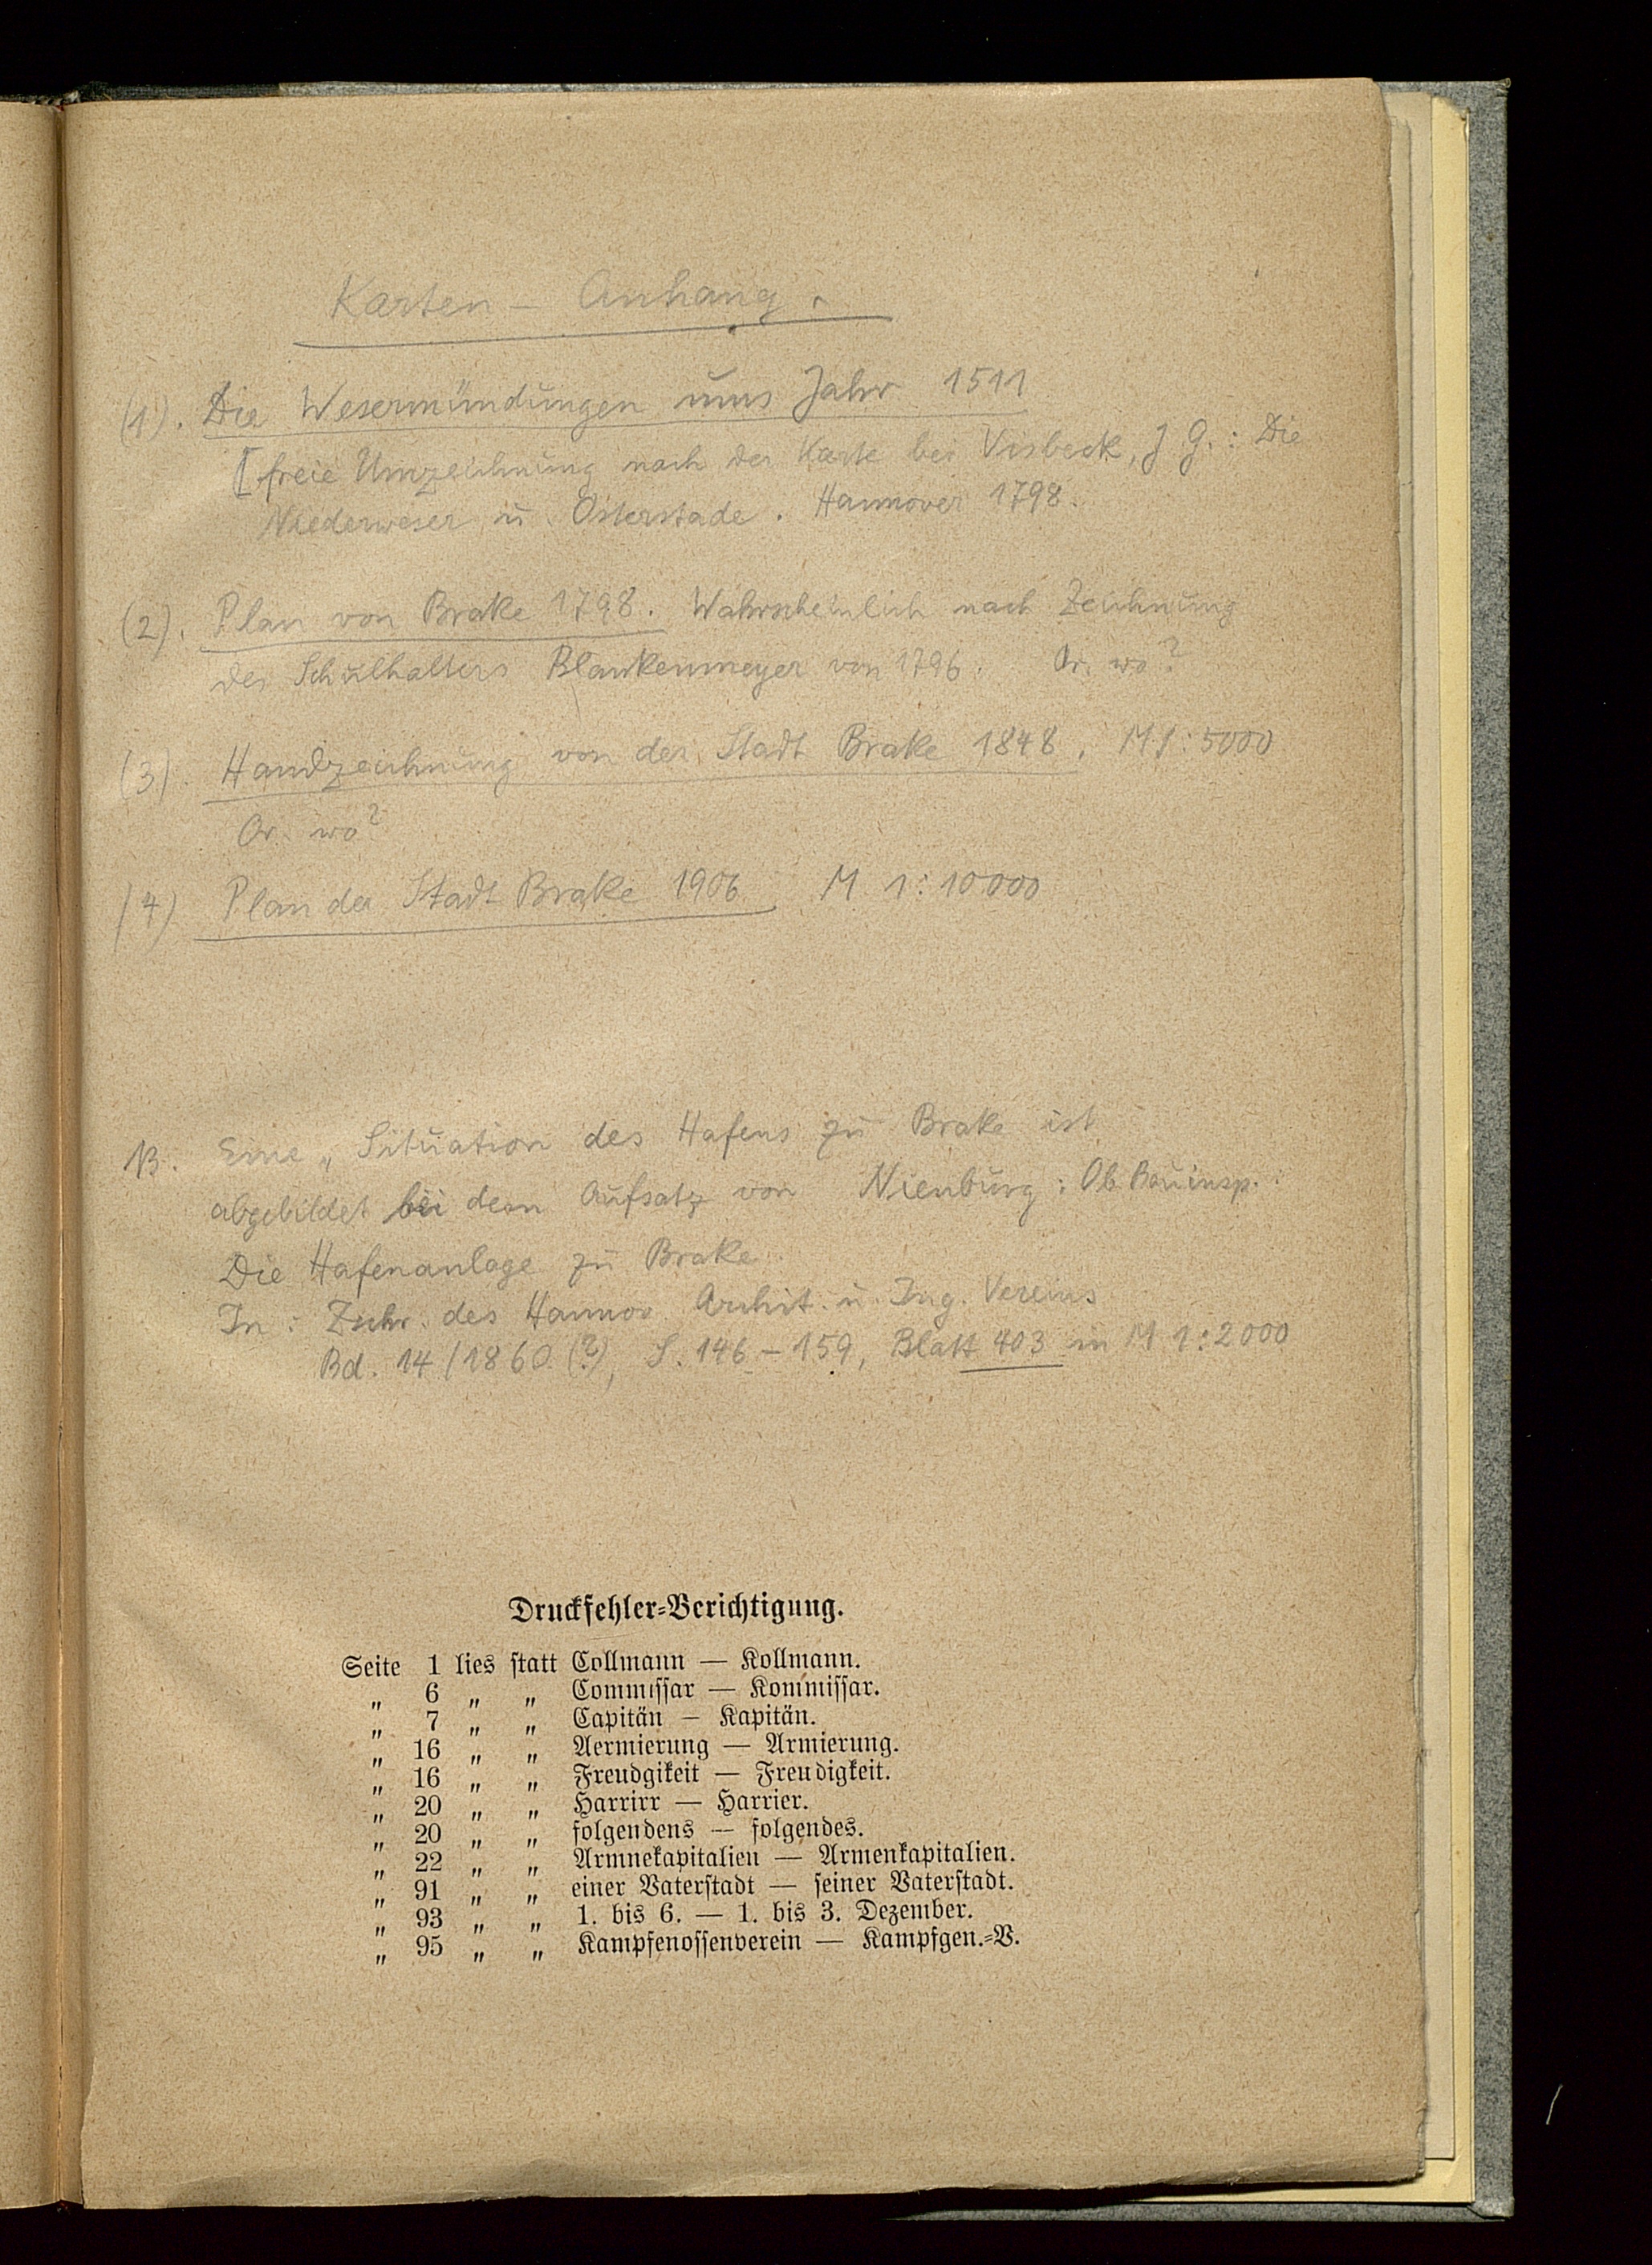 Karten - Anhang.
(1). Die Wesermündungen ums Jahr 1511
[freie Umzeichnung nach der Karte bei Visbeck, J. G.: Die
Niederweser u. Osterstade. Hannover 1798.
(2). Plan von Brake 1798. Wahrscheinlich nach Zeichnung
des Schulhalters Blankenmeyer von 1796. Or. wo?
(3). Handzeichnung von der Stadt Brake 1848. M 1:5000
Or. wo?
(4) Plan der Stadt Brake 1906 M. 1:10000
Eine „Situation des Hafens zu Brake ist
abgebildet bei dem Aufsatz von Nienburg: Ob. Bauinsp.:
Die Hafenanlage zu Brake.
In: Zschr. des Hannov. Archit. u. Ing. Vereins
Bd. 14/1860 (?), S. 146-159, Blatt 403 in M 1:2000
Druckfehler-Berichtigung.
Seite 1 lies statt Collmann — Kollmann.
„ 6 „ „ Commissar — Kommissar.
„ 7 „ „ Capitän — Kapitän.
„ 16 „ „ Aermierung — Armierung.
„ 16 „ „ Freudgikeit — Freudigkeit.
„ 20 „ „ Harrirr — Harrier.
„ 20 „ „ folgendens — folgendes.
„ 22 „ „ Armnekapitalien — Armenkapitalien.
„ 91 „ „ einer Vaterstadt — seiner Vaterstadt.
„ 93 „ „ 1. bis 6. — 1. bis 3. Dezember.
„ 95 „ „ Kampfenossenverein — Kampfgen.-V.